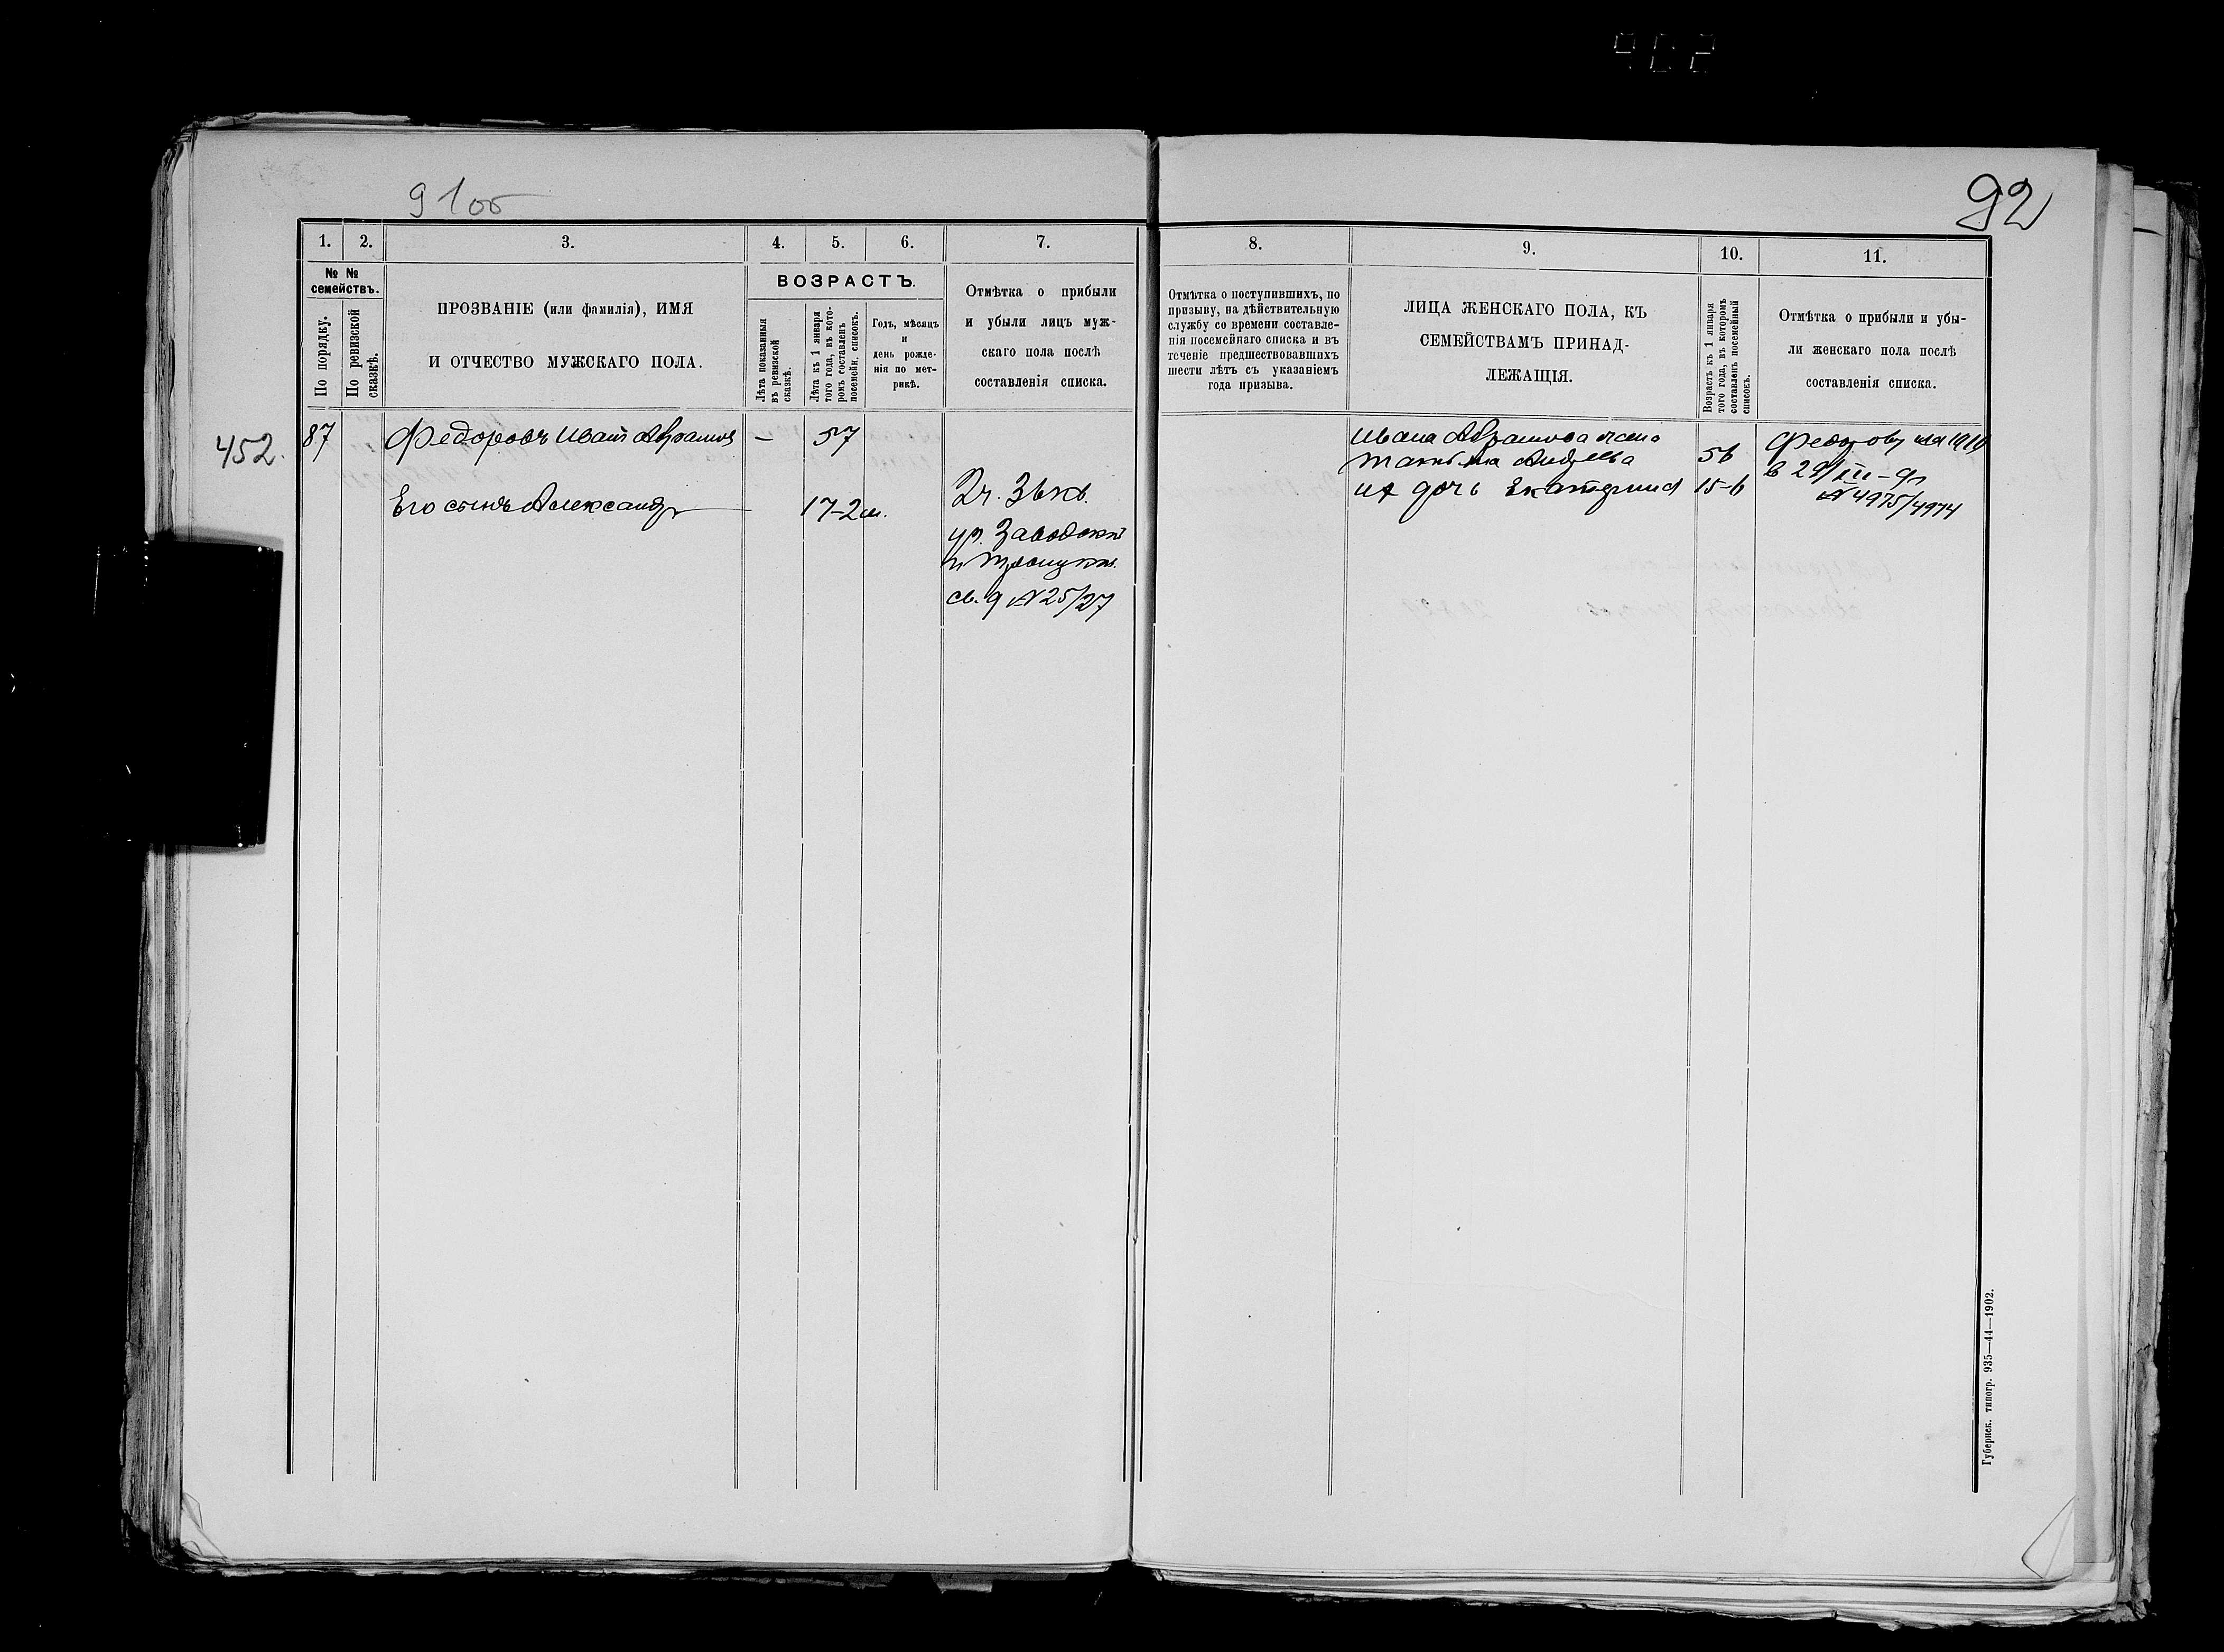 902
91об
92
1.
2.
3.
4.
5.
6.
7.
№ №
семействъ.
По порядку.
По ревизской
сказкѣ.
ПРОЗВАНІЕ (или фамилія), ИМЯ
И ОТЧЕСТВО МУЖСКАГО ПОЛА.
ВОЗРАСТЪ.
Лѣта показанныя
въ ревизской
сказкѣ.
Лѣта къ 1 января
того года, въ кото-
ромъ составленъ
посемейн. списокъ.
Годъ, мѣсяцъ
и
день рожде-
нія по мет-
рикѣ.
Отмѣтка о прибыли
и убыли лицъ муж-
скаго пола послѣ
составленія списка.
452.
87
Федоровъ Иванъ Абрамов
—
57
Его сынъ Александръ
17-2м.
2 г.
ур. Заводск
и
св. д № 25/27
8.
9.
10.
11.
Отмѣтка о поступившихъ, по
призыву, на дѣйствительную
службу со времени составле-
нія посемейнаго списка и въ
теченіе предшествовавшихъ
шести лѣтъ съ указаніемъ
года призыва.
ЛИЦА ЖЕНСКАГО ПОЛА, КЪ
СЕМЕЙСТВАМЪ ПРИНАД-
ЛЕЖАЩІЯ.
Возрастъ къ 1 января
того года, въ которомъ
составленъ посемейный
списокъ.
Отмѣтка о прибыли и убы-
ли женскаго пола послѣ
составленія списка.
Ивана Абрамова жена
Татьяна Андреева
56
их дочь Екатерина
15-6
Федорову
в 29/III-9г
№ 4975/4974
Губернск. типогр. 935—44—1902.